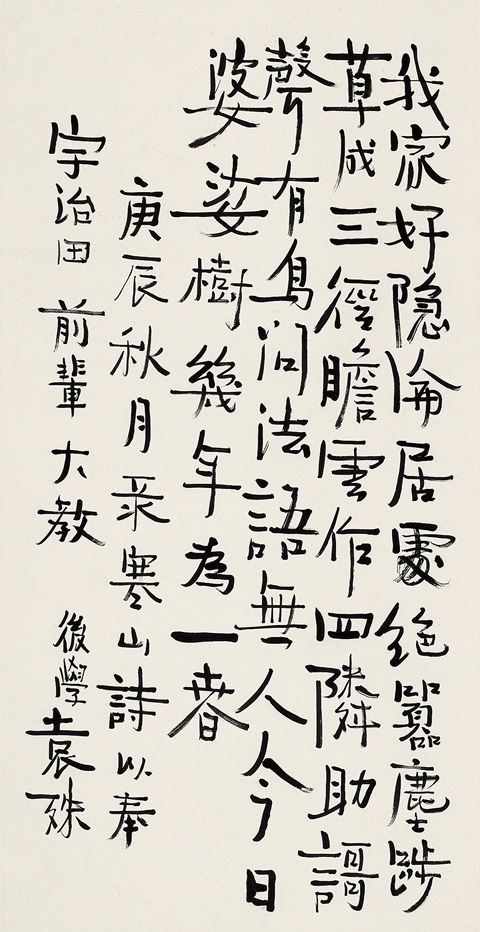 我家好隐淪居處絕囂塵踐
草成三徑瞻雲作四隣助謌
聲有鳥問法語無人今日
婆娑樹幾年為一春
庚辰秋月录寒山詩以奉
宇治田前輩大教 後學袁殊